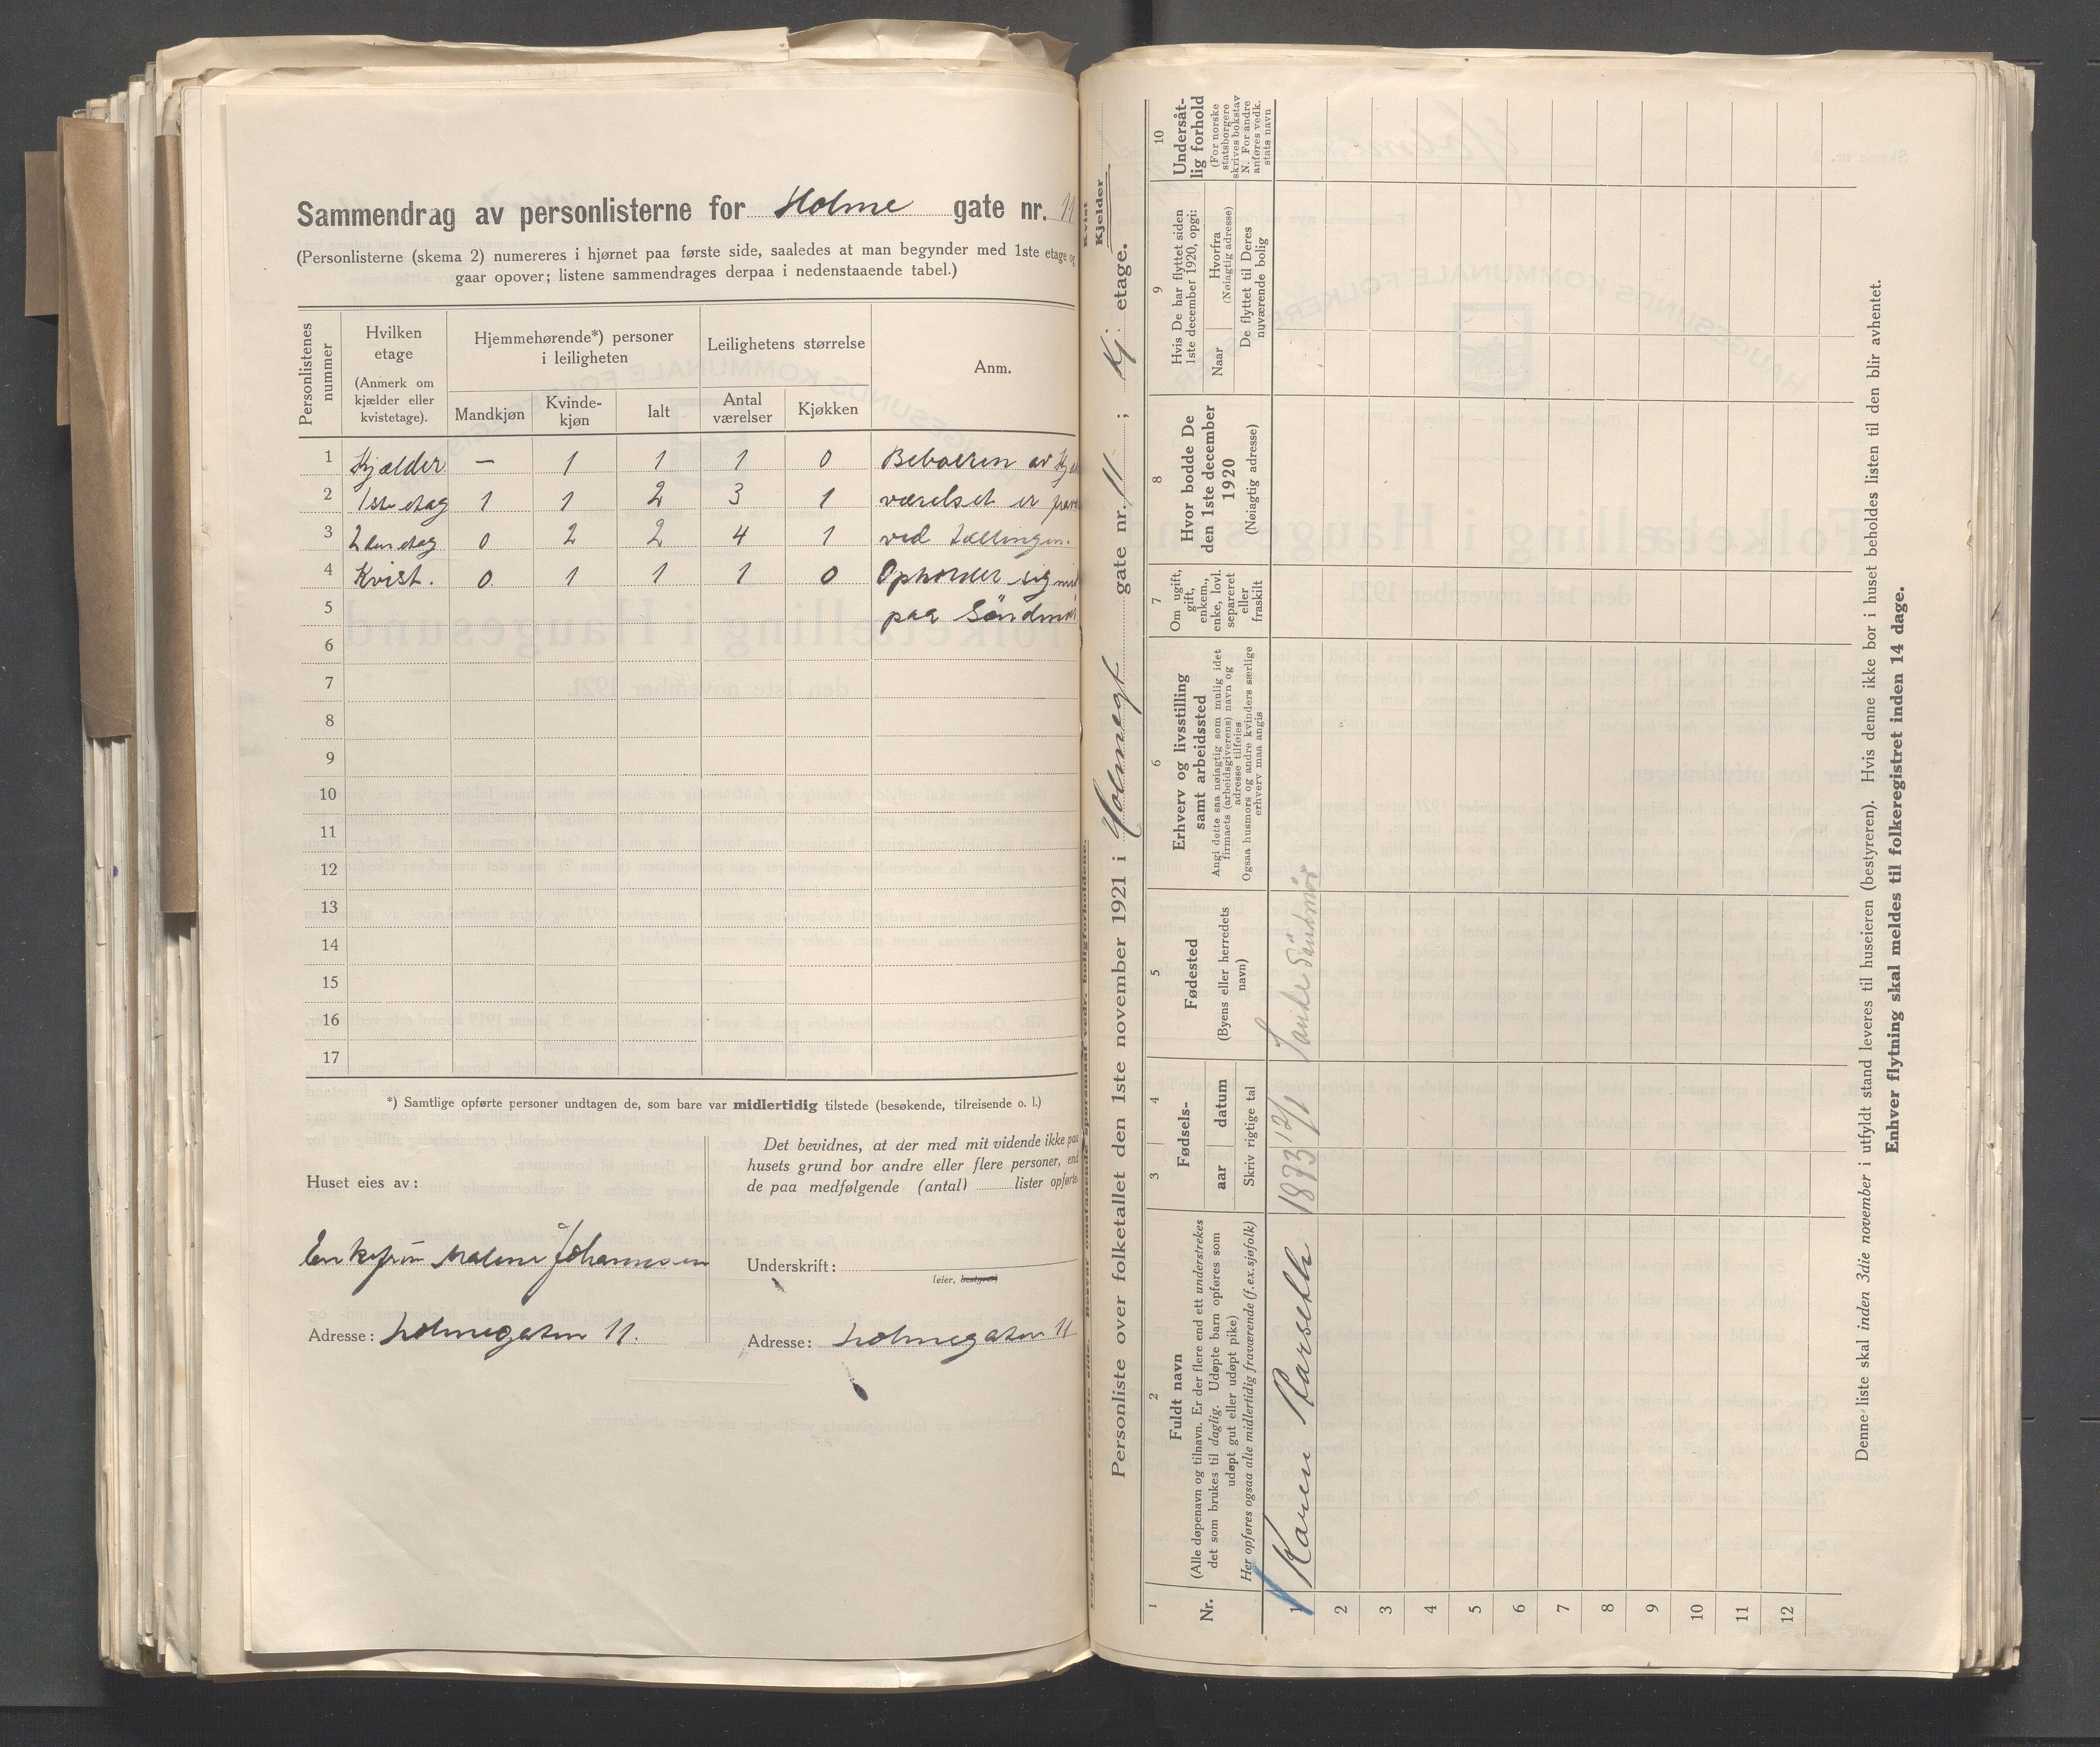 Sammendrag av personlisterne for Holme gate nr. 11
(Personlisterne (skema 2) numereres i hjørnet paa første side, saaledes at man begynder med 1ste etage og
gaar opover; listene sammendrages derpaa i nedenstaaende tabel.)
Personlistenes nummer
Hvilken etage
(Anmerk om kjælder eller kvistetage).
Hjemmehørende*) personer i leiligheten
Mandkjøn
Kvindekjøn
Ialt
Leilighetens størrelse
Antal værelser
Kjøkken
Anm.
1 Kjælder — 1 1 1 0 Beboeren av
2 1ste etag 1 1 2 3 1 værelset er
3 2den etag 0 2 2 4 1 ved tællingen.
4 Kvist. 0 1 1 1 0 Opholder sig
5 paa
6
7
8
9
10
11
12
13
14
15
16
17
*) Samtlige opførte personer undtagen de, som bare var midlertidig tilstede (besøkende, tilreisende o. l.)
Huset eies av:
Enkefru Malene Johannesen
Adresse: Holmegaten 11.
Det bevidnes, at der med mit vidende ikke paa
husets grund bor andre eller flere personer, end
de paa medfølgende (antal) lister opførte.
Underskrift:
(eier, bestyrer)
Adresse: Holmegaten 11
Kvist
Kjelder
Personliste over folketallet den 1ste november 1921 i Holmegt gate nr. 11 ; Kj. etage.
1
Nr.
2
Fuldt navn
(Alle døpenavn og tilnavn. Er der flere end ett understrekes
det som brukes til daglig. Udøpte barn opføres som
udøpt gut eller udøpt pike)
Her opføres ogsaa alle midlertidig fraværende (f. ex. sjøfolk)
3 4
Fødsels-
aar datum
Skriv rigtige tal
5
Fødested
(Byens eller herredets navn)
6
Erhverv og livsstilling
samt arbeidssted
Angi dette saa nøiagtig som mulig idet
firmaets (arbeidsgiverens) navn og
adresse tilføies
Ogsaa husmors og andre kvinders særlige
erhverv maa angis
7
Om ugift,
gift,
enkem.,
enke, lovl.
separeret
eller
fraskilt
8
Hvor bodde De
den 1ste december
1920
(Nøiagtig adresse)
9
Hvis De har flyttet siden
1ste december 1920, opgi:
Naar
Hvorfra
(Nøiagtig adresse)
De flyttet til Deres
nuværende bolig
10
Undersåt-
lig forhold
(For norske
statsborgere
skrives bokstav
N. For andre
anføres vedk.
stats navn
1 Karen Rarseth 1893 12/1 Sande Søndmør
2
3
4
5
6
7
8
9
10
11
12
Denne liste skal inden 3die november i utfyldt stand leveres til huseieren (bestyreren). Hvis denne ikke bor i huset beholdes listen til den blir avhentet.
Enhver flytning skal meldes til folkeregistret inden 14 dage.